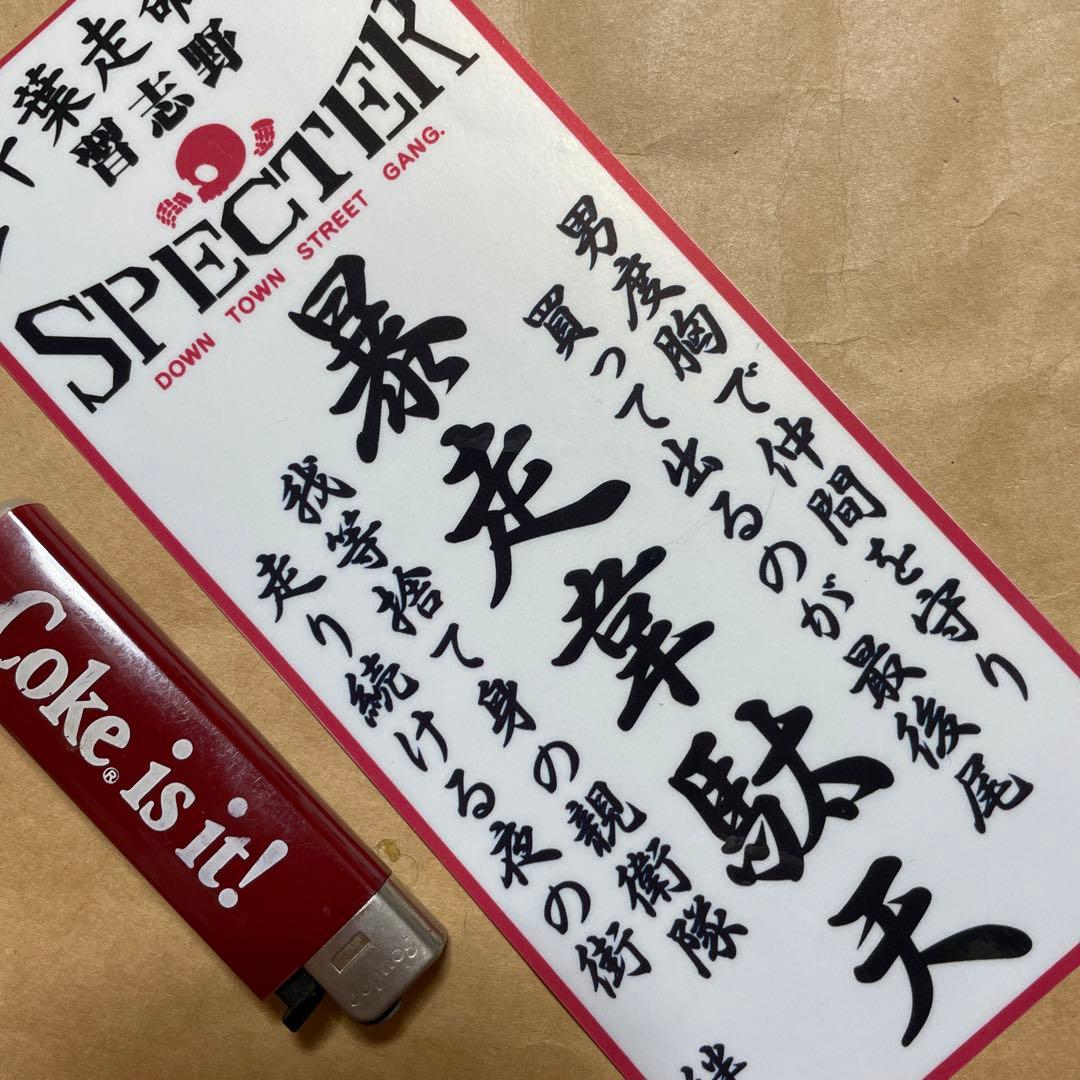 千葉走命
習志野
SPECTER
DOWN TOWN STREET GANG.
男度胸で仲間を守り
買って出るのが最後尾
暴走韋駄天
我等捨て身の親衛隊
走り続ける夜の街
Coke® is it!